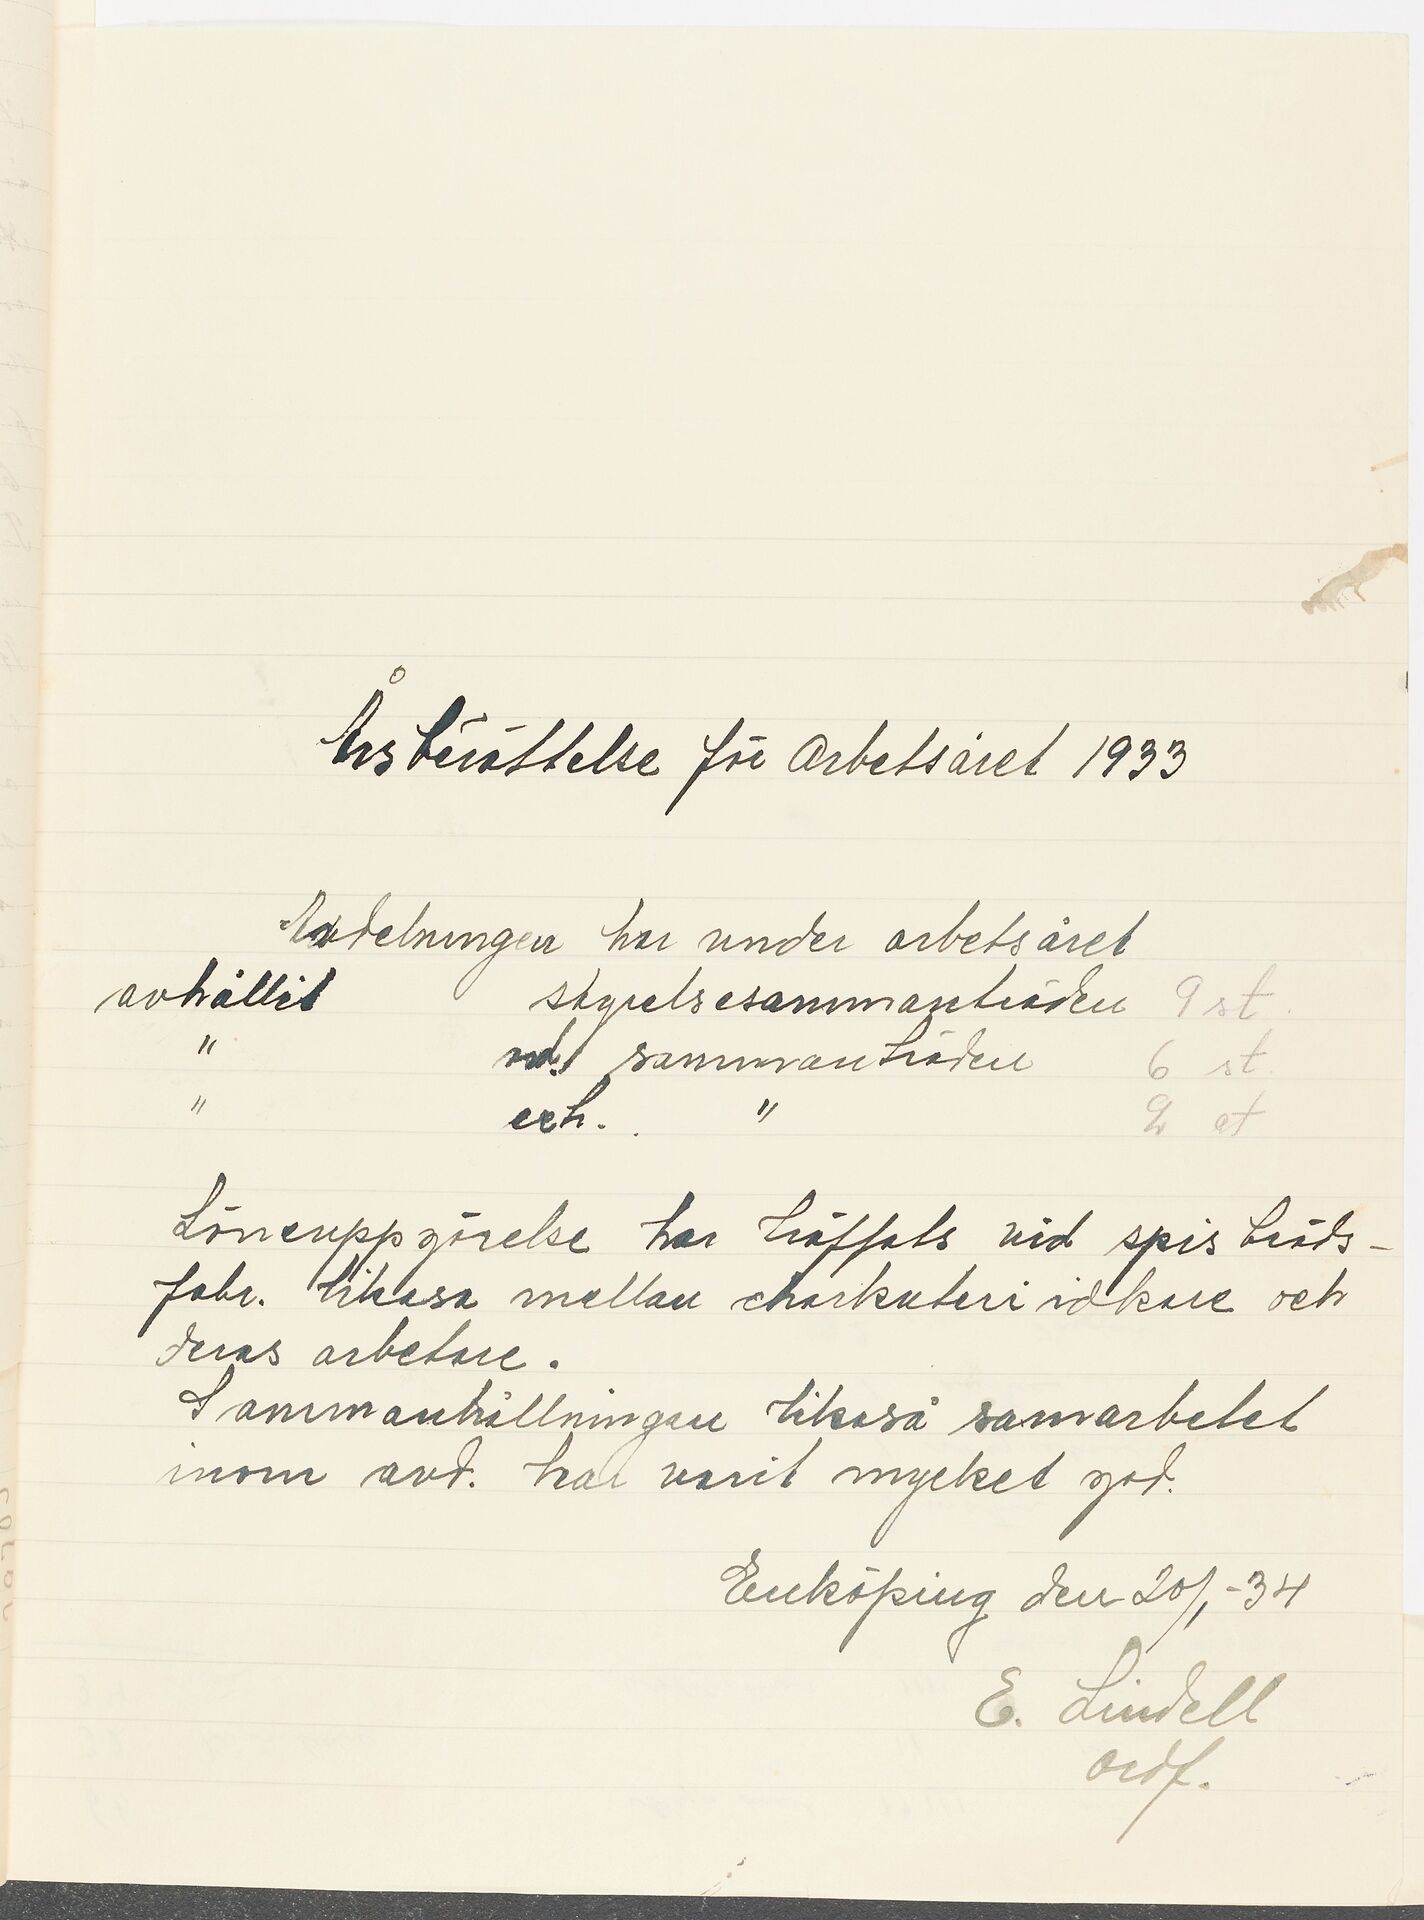 Årsberättelse för Arbetsåret 1933
Avdelningen har under arbetsåret
avhållit styrelsesammanträden 9 st.
" ord. sammanträden 6 st.
" exh. " 2 st
Löneuppgörelse har träffats vid spisbröds-
fabr. likaså mellan charkuteriidkare och
deras arbetare.
Sammanhållningen likaså samarbetet
inom avd. har varit mycket god.
Enköping den 20/1 -34
E. Lindell
Ordf.